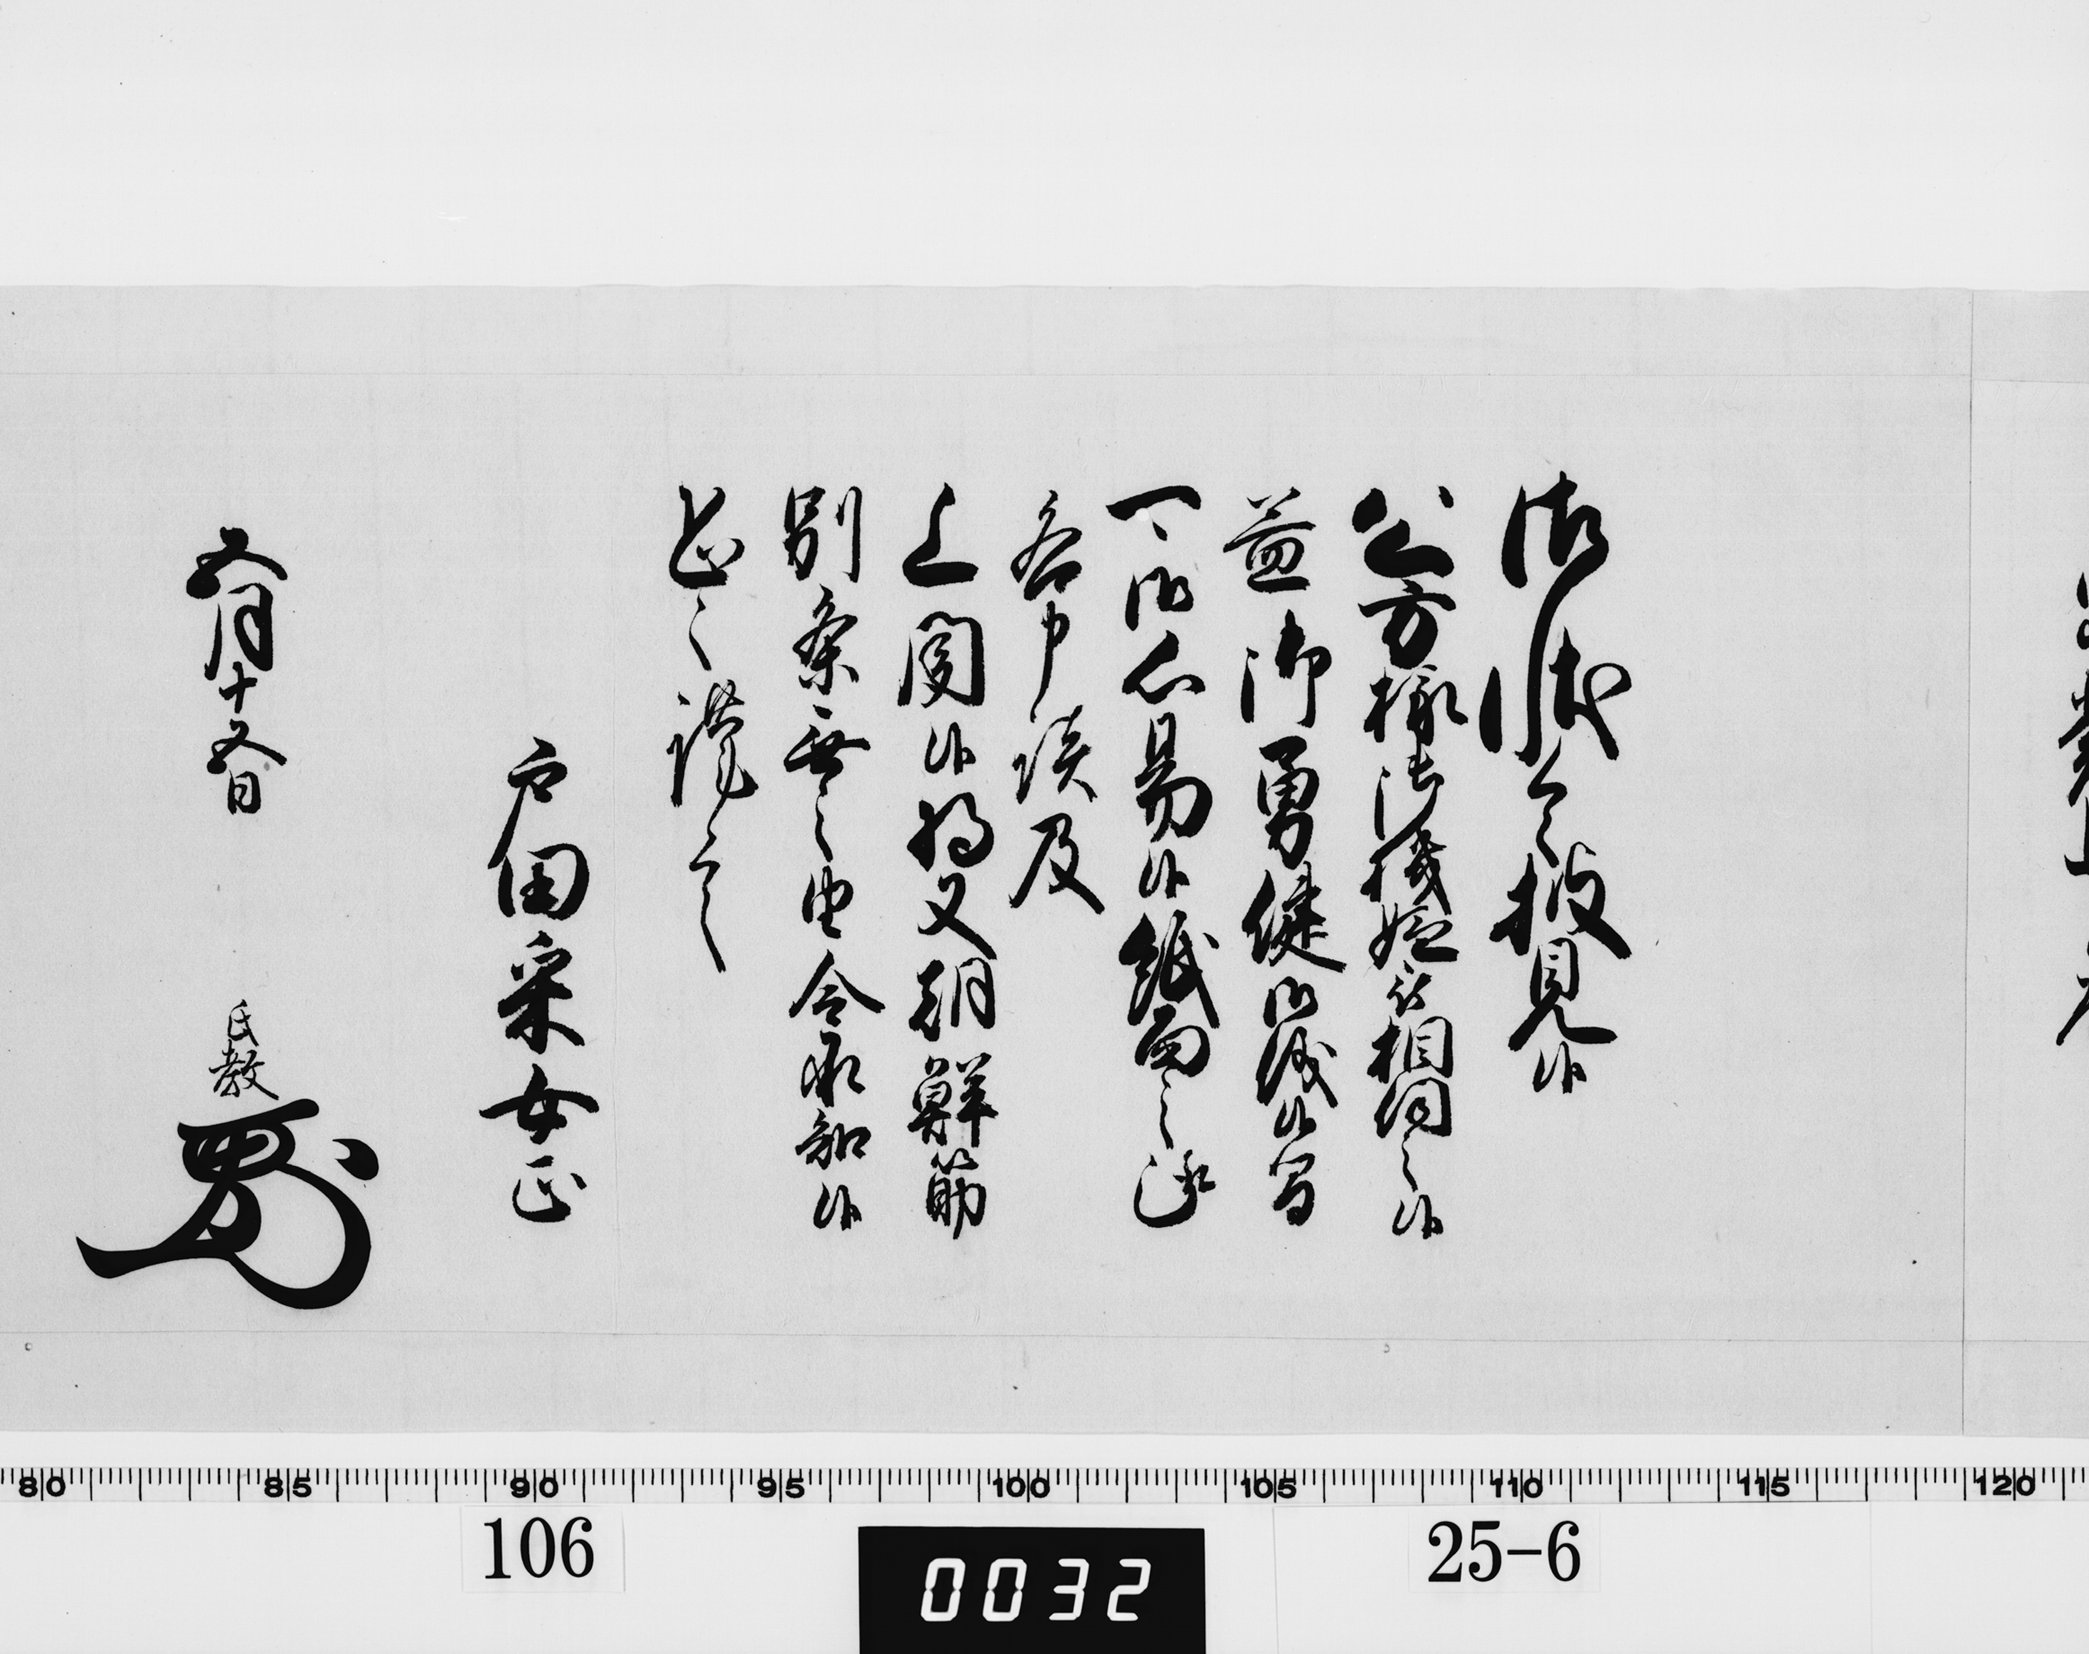 御状令披見候
公方様御機嫌被相伺之候
益御勇健御儀候間
可御心易候紙面之趣
各申談及
上聞候将又朝鮮筋
別条無之由令承知候
恐々謹言
戸田采女正
五月十五日
氏教
80 85 90 95 100 105 110 115 120
106
0032
25-6